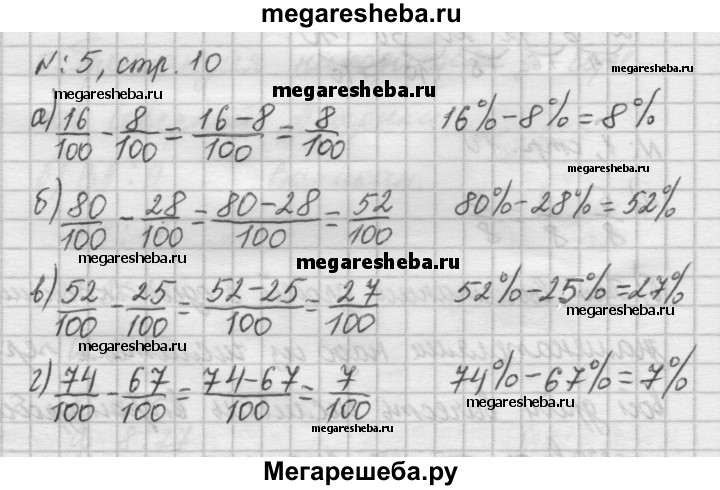 megaresheba.ru
№ 5, стр. 10
megaresheba.ru
megaresheba.ru
а) 16/100 - 8/100 = 16-8/100 = 8/100 16% - 8% = 8%
megaresheba.ru
megaresheba.ru
б) 80/100 - 28/100 = 80-28/100 = 52/100 80% - 28% = 52%
megaresheba.ru
megaresheba.ru
в) 52/100 - 25/100 = 52-25/100 = 27/100 52% - 25% = 27%
megaresheba.ru
megaresheba.ru
г) 74/100 - 67/100 = 74-67/100 = 7/100 74% - 67% = 7%
megaresheba.ru
megaresheba.ru
Мегарешеба.ру